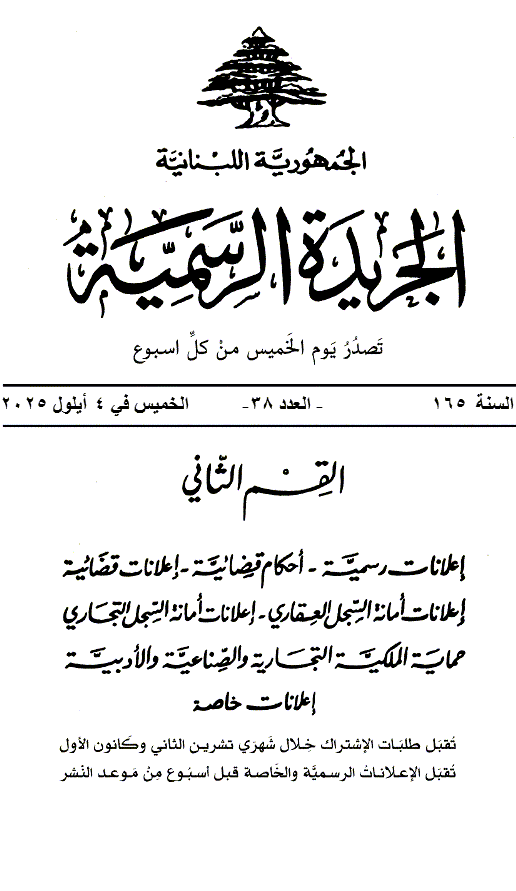 الجمهوريَّة اللبْنانيَّة
الجَريدَة الرَّسمِيَّة
تَصدُرُ يَوم الخَميس منْ كلِّ اسبوع
السنة ١٦٥ - العدد ٣٨- الخميس في ٤ أيلول ٢٠٢٥
القِسْم الثّاني
إعلانات رسميَّة - أحكام قضائيَّة - إعلانات قضائية
إعلانات أمانة السِّجل العقاري - إعلانات أمانة السِّجل التجاري
حماية الملكيَّة التجارية والصِّناعيَّة والأدبيَّة
إعلانات خاصة
تُقبَل طلبَات الإشتراك خِلال شَهرَي تشرين الثاني وكَانون الأول
تُقبَل الإعلاناتُ الرسميَّة والخَاصة قبل أسبُوع مِنْ مَوعد النَشر